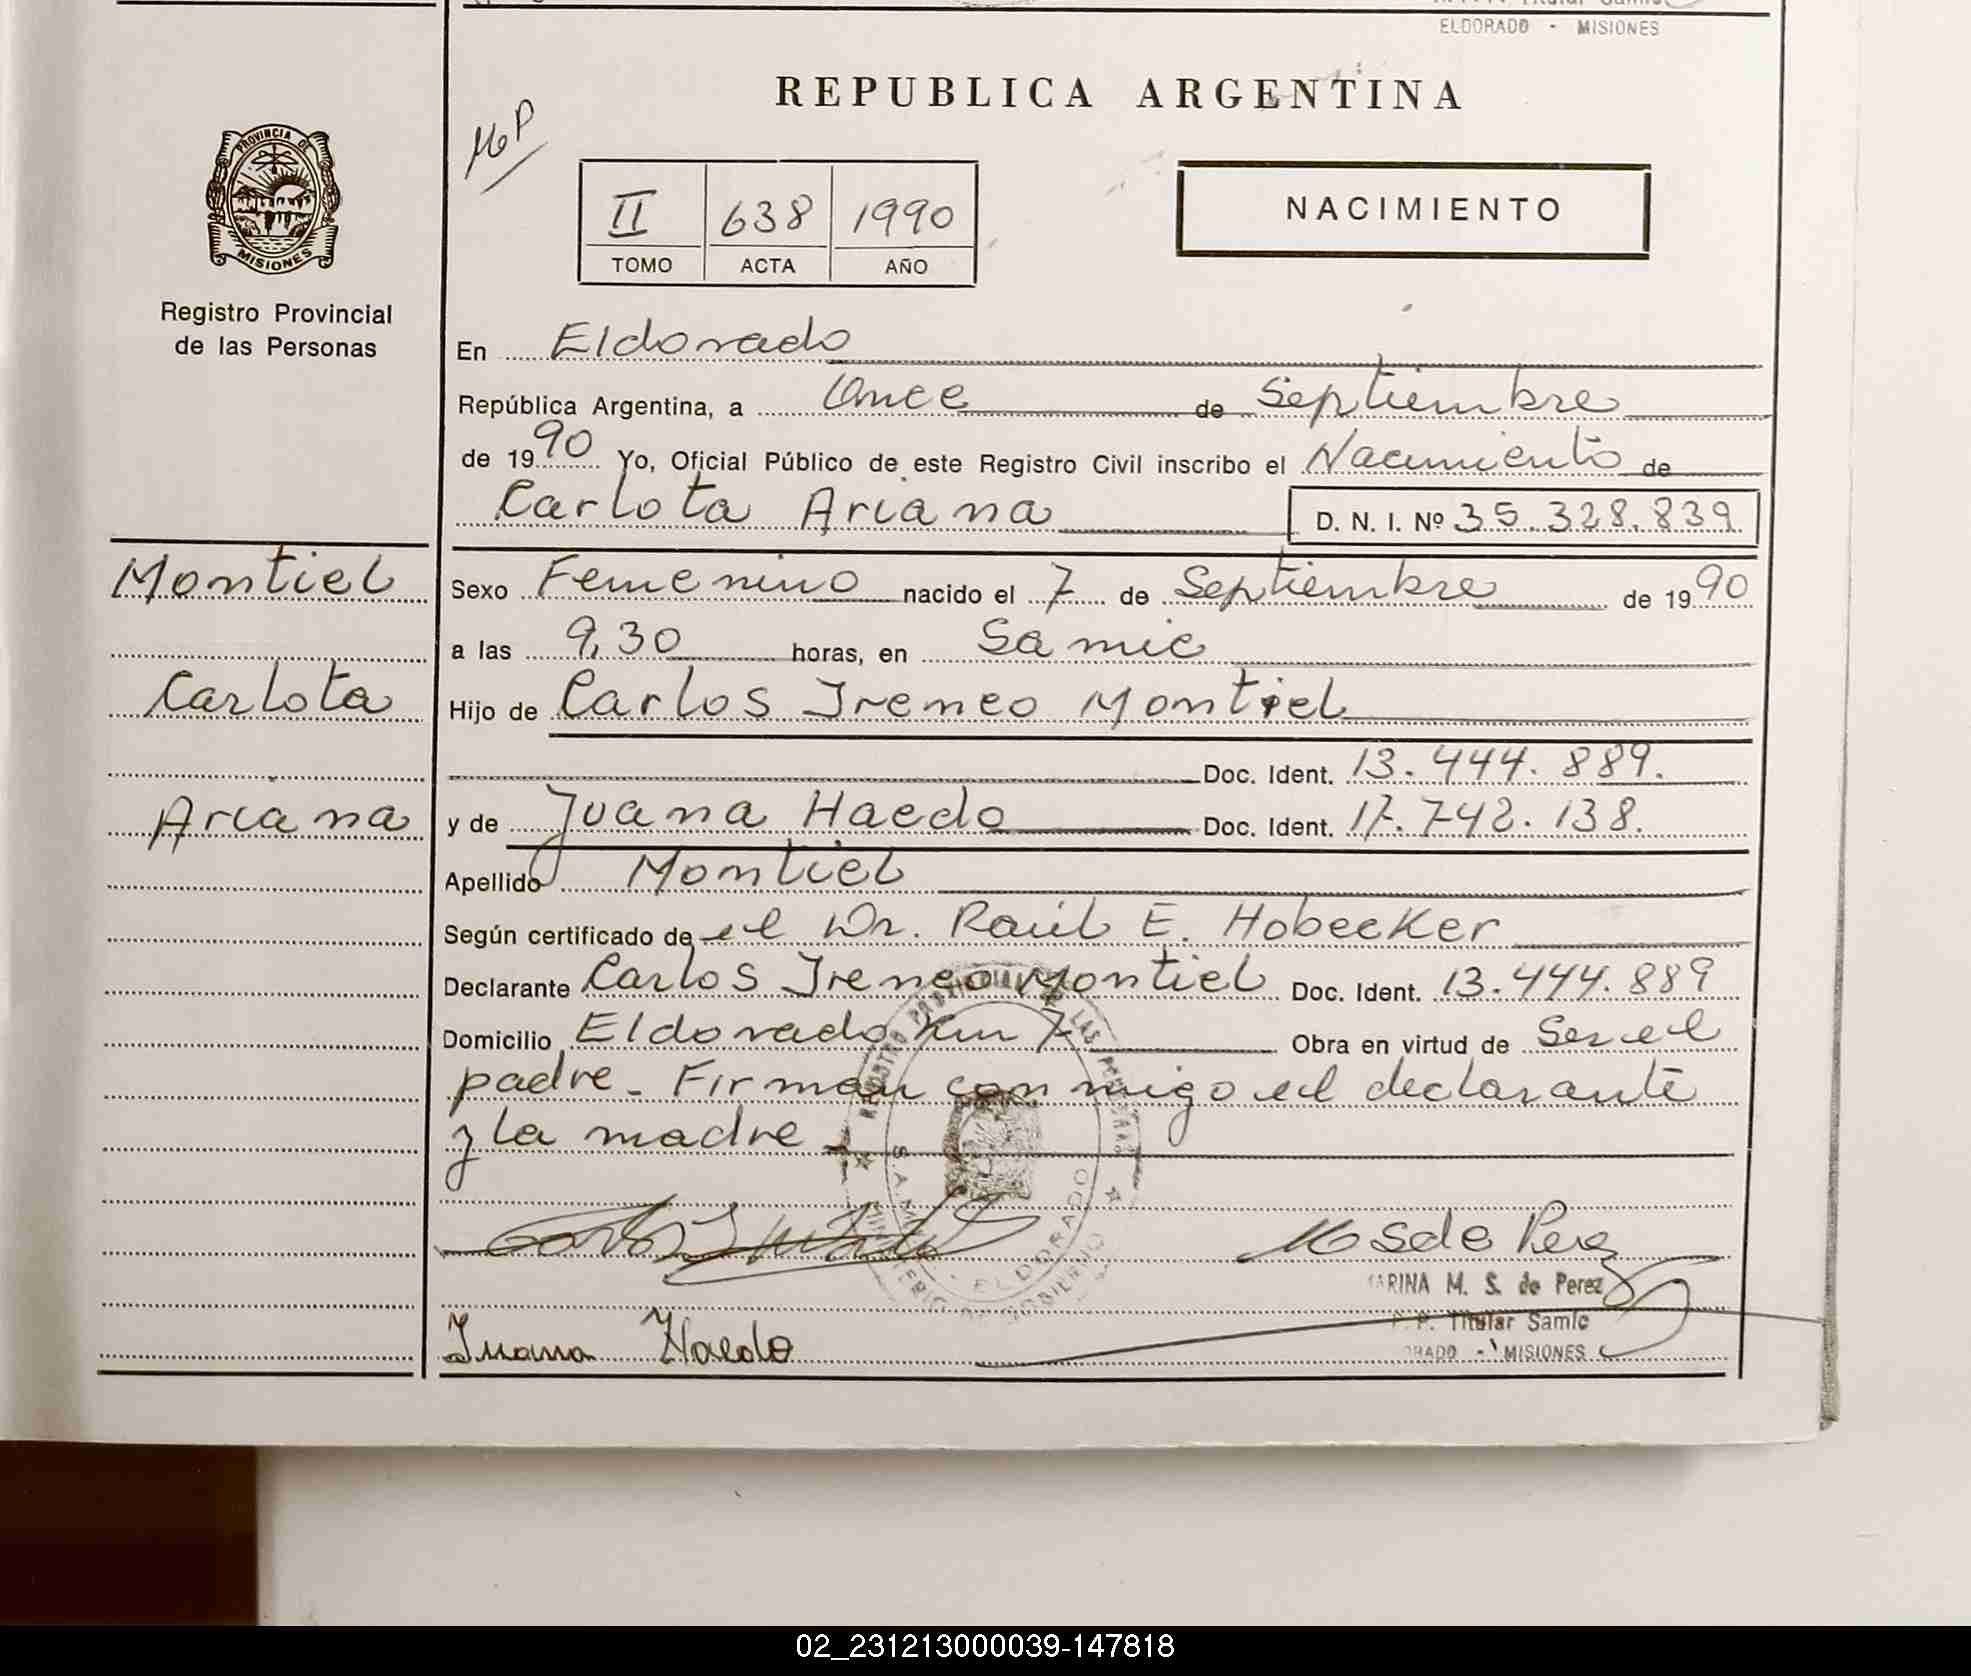 ELDORADO - MISIONES
REPUBLICA ARGENTINA
PROVINCIA DE
MISIONES
Registro Provincial
de las Personas
II 638 1990
TOMO ACTA AÑO
NACIMIENTO
En Eldorado
República Argentina, a Once de Septiembre
de 1990 Yo, Oficial Público de este Registro Civil inscribo el Nacimiento de
Carlota Ariana D. N. I. Nº 35.328.839
Montiel
Carlota
Ariana
Sexo Femenino nacido el 7 de Septiembre de 1990
a las 9,30 horas, en Samic
Hijo de Carlos Ireneo Montiel
Doc. Ident. 13.444.889.
y de Juana Haedo Doc. Ident. 17.742.138.
Apellido Montiel
Según certificado de el Dr. Raúl E. Hobecker
Declarante Carlos Ireneo Montiel Doc. Ident. 13.444.889
Domicilio Eldorado Km 7 Obra en virtud de Ser el
padre - Firman conmigo el declarante
y la madre
M S de Perez
ARINA M. S. de Perez
Titular Samic
Juana Haedo
MISIONES
02_231213000039-147818